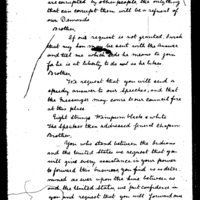 are corrupted by other people the only thing
that can corrupt them will be a refusal of
our Demands
Brother,
If our request is not granted, I wish
that may be sent with the answer
and tell me which side he means to join
for he is at liberty to do so as he likes
Brother,
We request that you will send a
speedy answer to our speeches, and that
the messenger may come to our council fire
at this place
Eight strings Wampum black & white
The speaker then addressed
Brother
You who stand between the Indians
and the United States we request that you
will give every assistance in your power
to forward this business you find us
much as ever upon the line between us
and the United States, we put confidence in
you and request that you will forward our